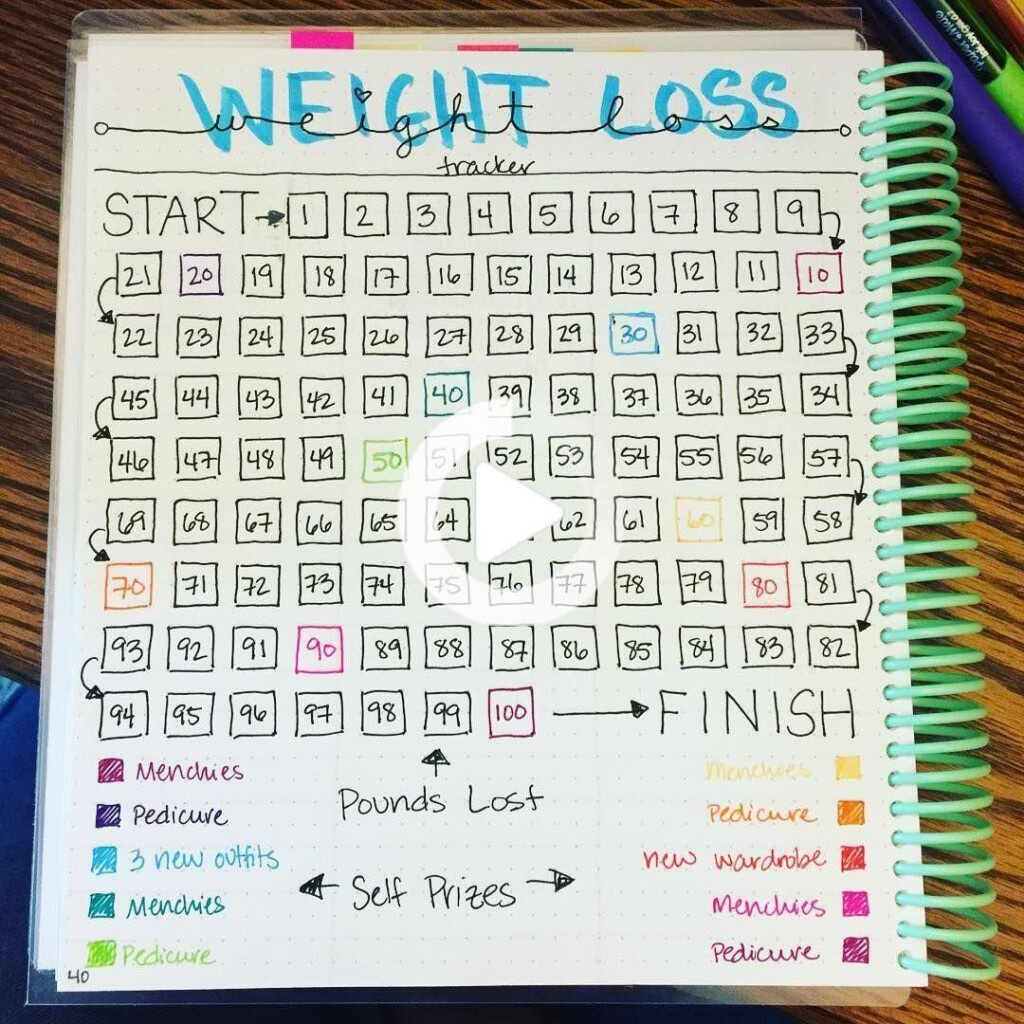 WEIGHT LOSS
weight loss
tracker
START 1 2 3 4 5 6 7 8 9
21 20 19 18 17 16 15 14 13 12 11 10
22 23 24 25 26 27 28 29 30 31 32 33
45 44 43 42 41 40 39 38 37 36 35 34
46 47 48 49 50 51 52 53 54 55 56 57
69 68 67 66 65 64 62 61 60 59 58
70 71 72 73 74 75 76 77 78 79 80 81
93 92 91 90 89 88 87 86 85 84 83 82
94 95 96 97 98 99 100 FINISH
Pounds Lost
Self Prizes
Menchies
Pedicure
3 new outfits
Menchies
Pedicure
Menchies
Pedicure
new wardrobe
Menchies
Pedicure
40